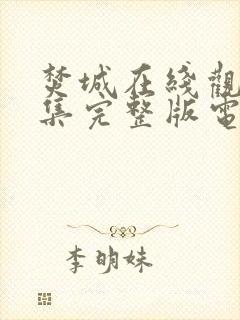 焚城在綫觀
集完整版電
李明妹